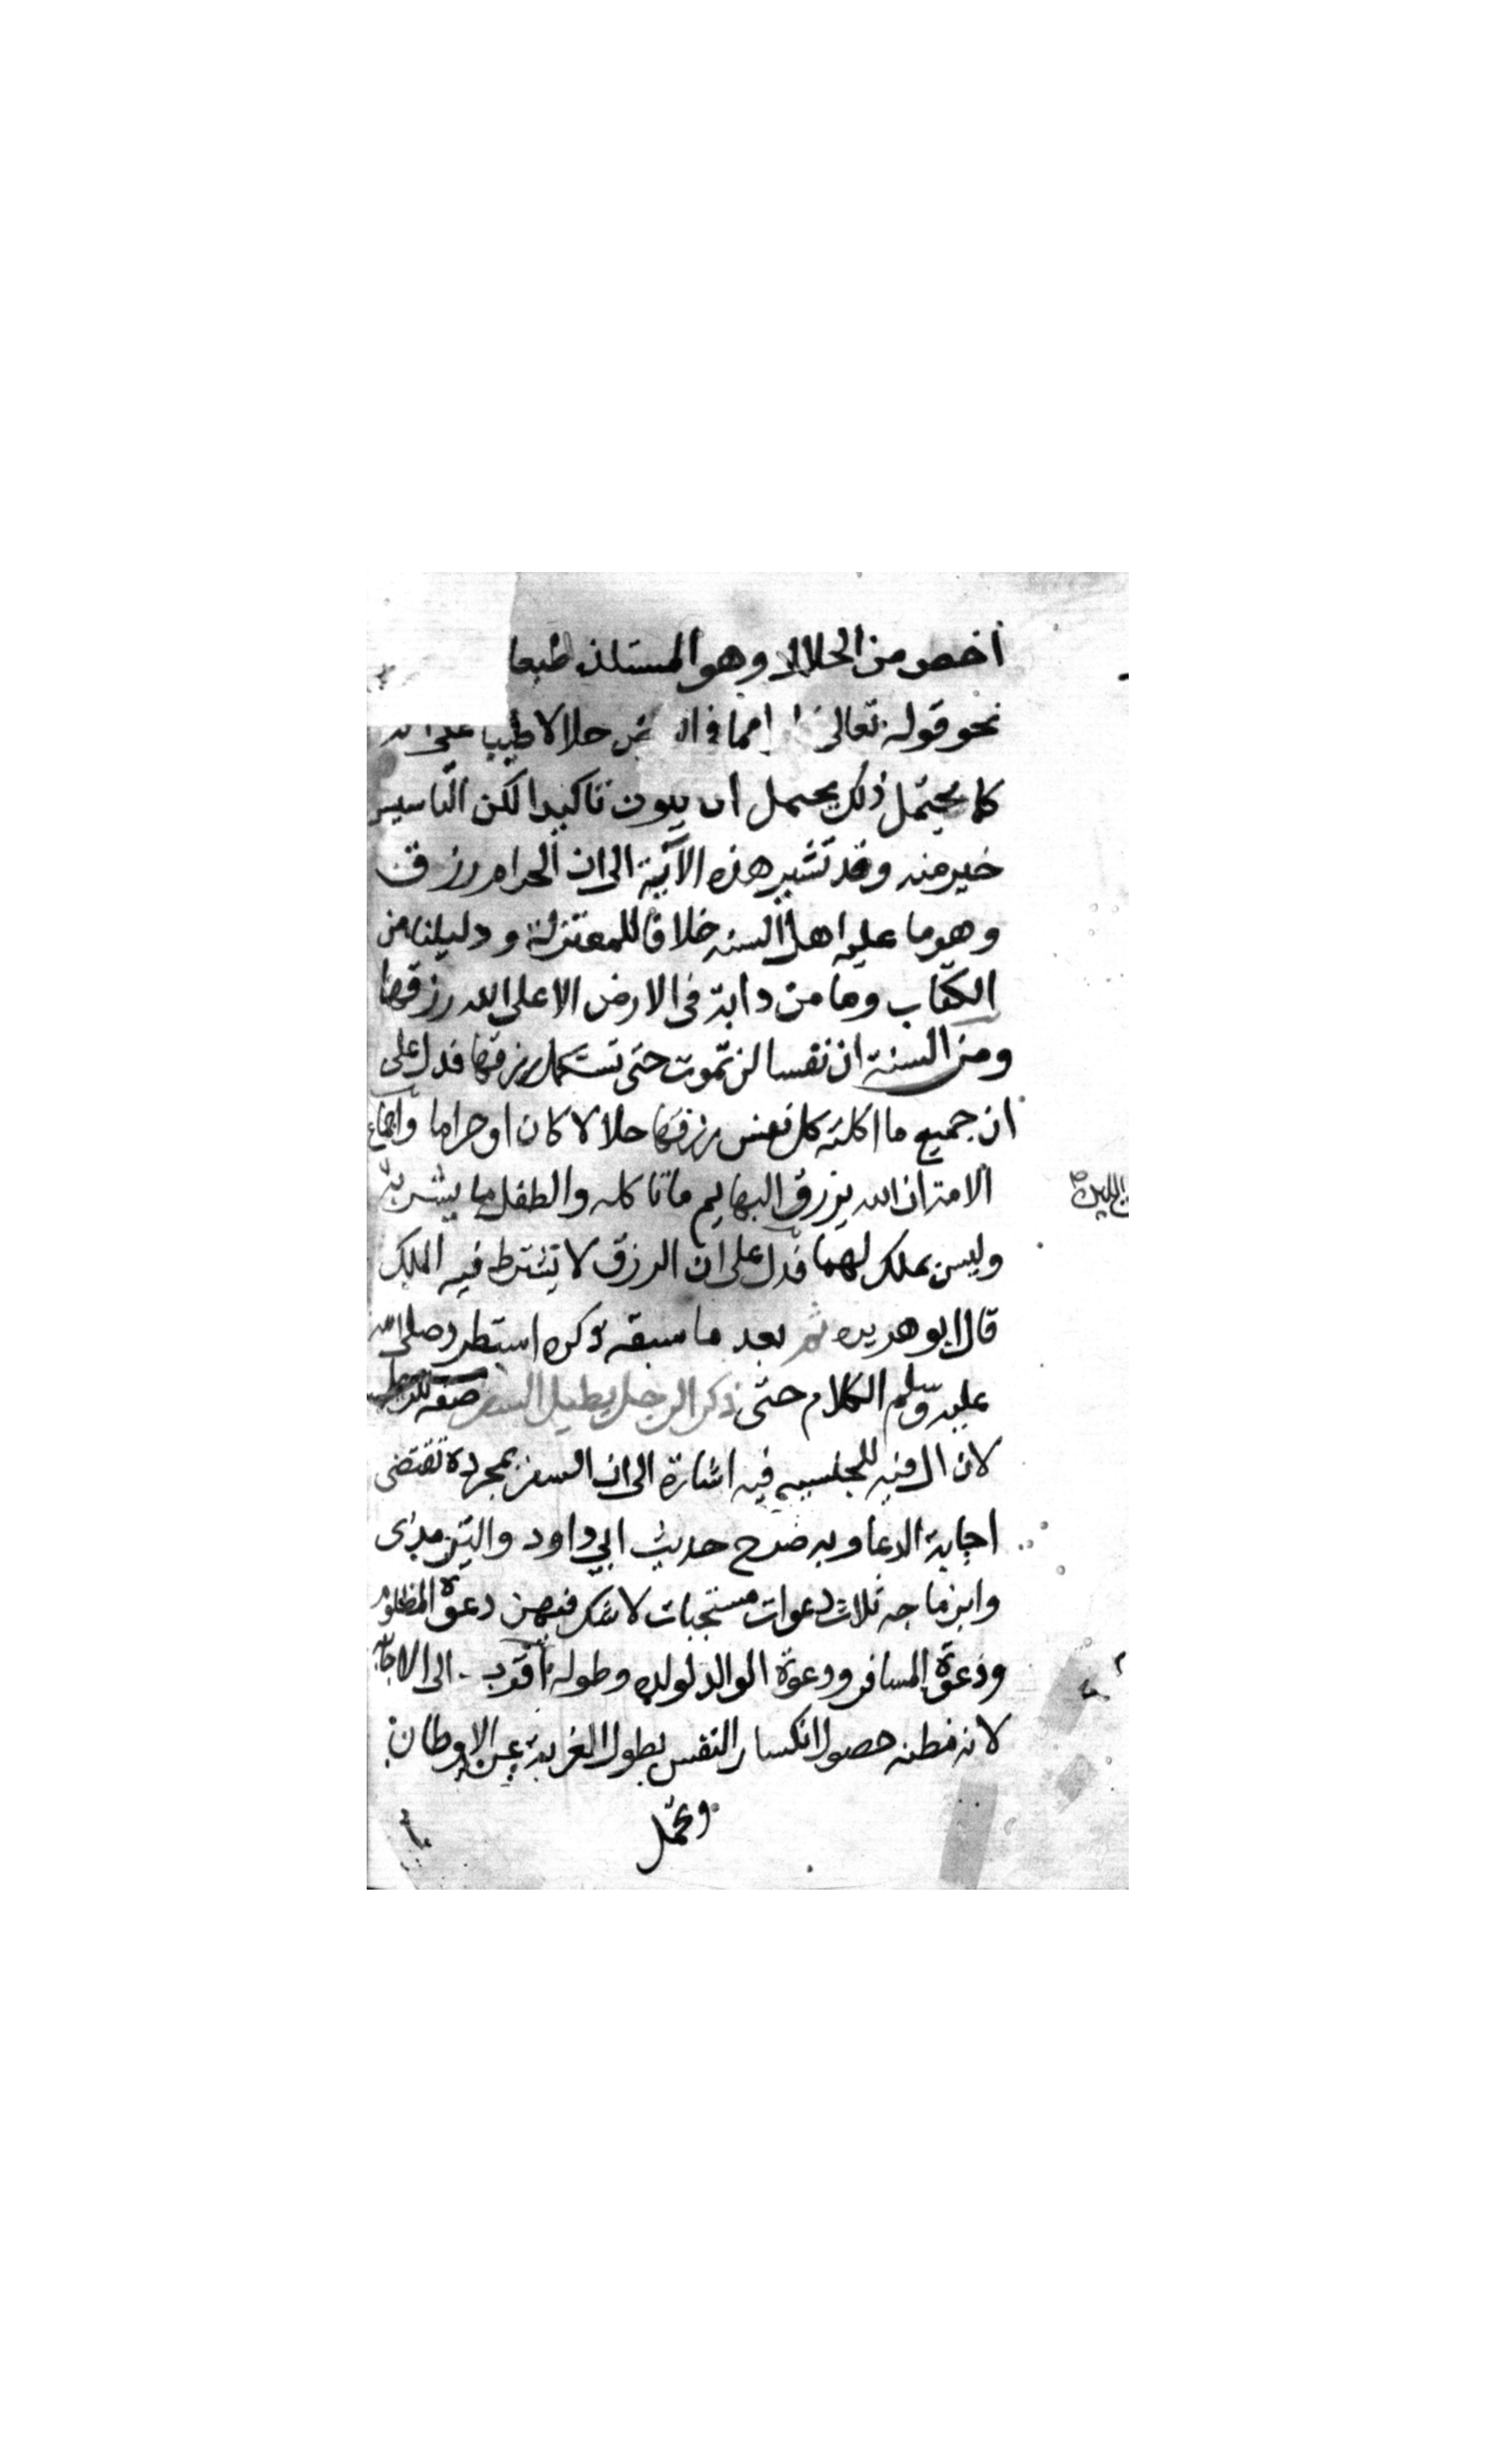 اخص من الحلال وهو المستلذ طبعا
نحو قوله تعالى مما في حلالا طيبا على
كما يحتمل ذلك يحتمل ان يكون تاكيدا لكن التاسيس
خير منه وقد تشير هذه الآية الى ان الحرام رزق
وهو ما عليه اهل السنه خلافا للمعتزلة ودليلنا من
الكتاب وما من دابة في الارض الا على الله رزقها
ومن السنة ان نفسا لن تموت حتى تستكمل رزقها فدل على
ان جميع ما اكلته كل نفس رزقها حلالا كان او حراما واجماع
الامة ان الله يرزق البهايم ما تاكله والطفل ما يشربه
وليس بملك لهما فدل على ان الرزق لا تشترط فيه الملك
قال ابو هريره ثم بعد ما سبقه ذكره استطرد صلى الله
عليه وسلم الكلام حتى ذكر الرجل يطيل السفر صفه للرجل
لان ال فيه للجنسيه فيه اشارة الى ان السفر بمجرده تقتضى
اجابة الدعا وبه صرح حديث ابي داود والترمذى
وابن ماجه ثلاث دعوات مستجبات لا شك فيهن دعوة المظلوم
ودعوة المسافر ودعوة الوالد لولده وطوله اقرب الى الاجابه
لانه مظنه حصول انكسار النفس بطول الغربة عن الاوطان
ويحمل